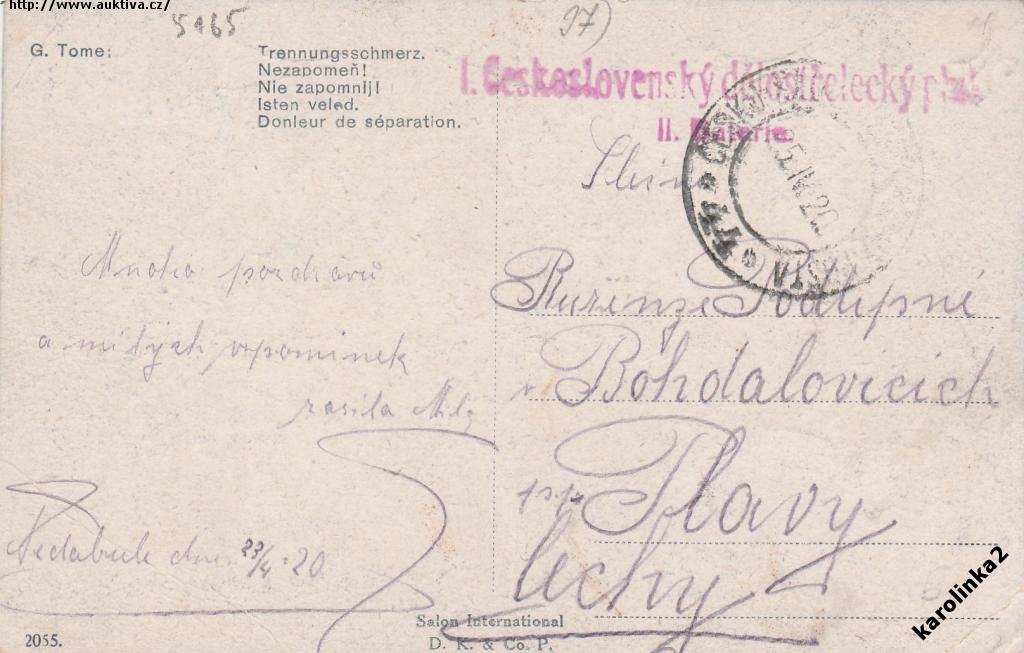 http://www.auktiva.cz/
5165
97)
G. Tome:
Trennungsschmerz.
Nezapomeň!
Nie zapomnij!
Isten veled.
Donleur de séparation.
I. Československý dělostřelecký pluk
II. Baterie.
Slečna
Mnoho pozdravů
a milých vzpomínek
zasílá
Růženze Podlipné
v Bohdalovicích
p.p. Plavy
Čechy
dne 23/4 20
2055.
Salon International
D. K. & Co. P.
karolinka2